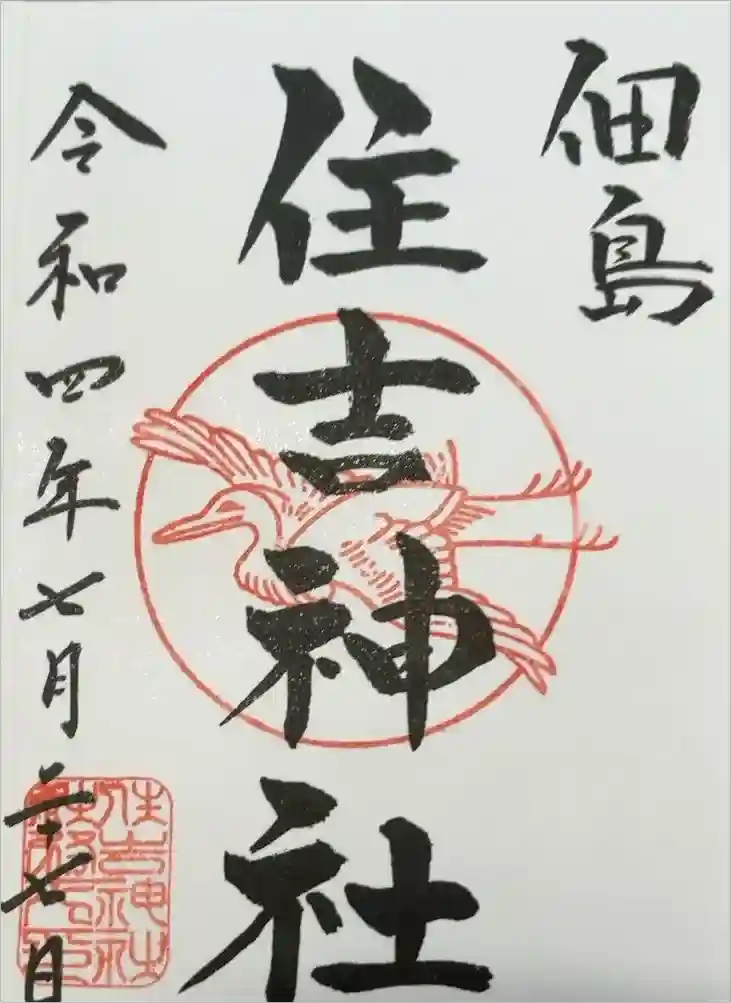 佃島
住吉神社
令和四年七月二十七日
住吉神社